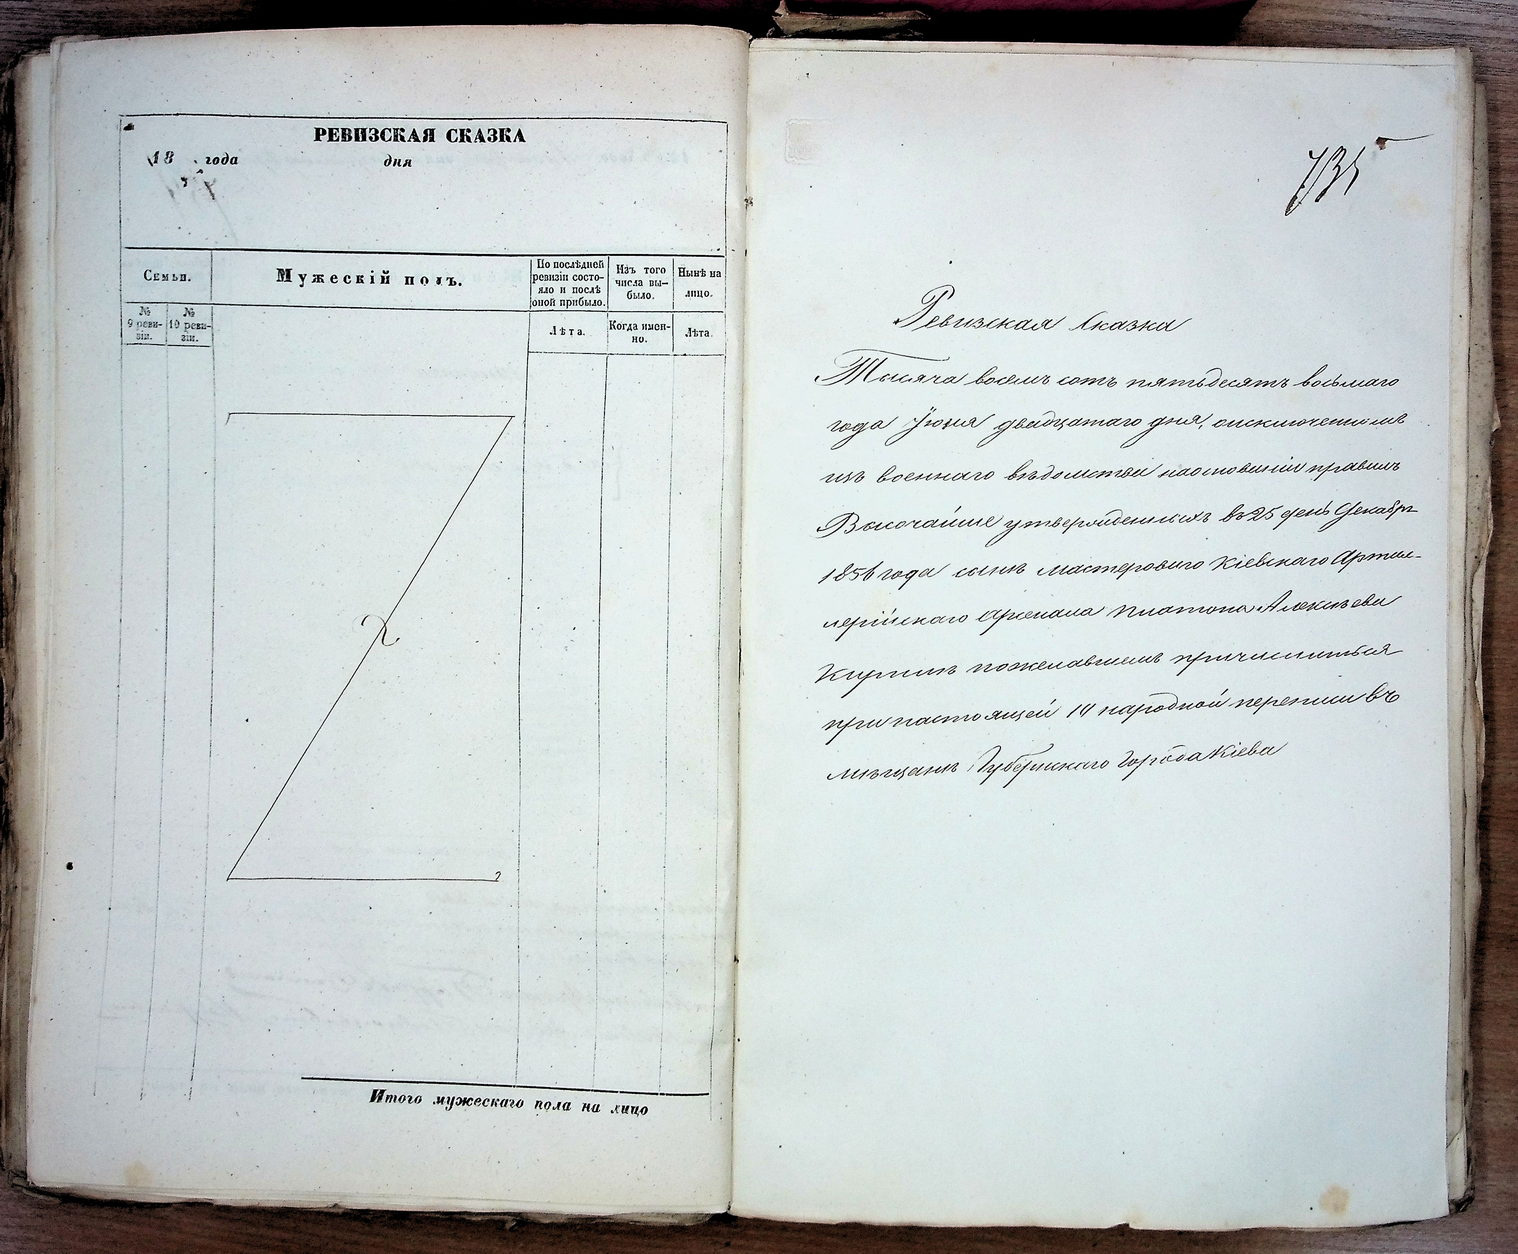 РЕВИЗСКАЯ СКАЗКА
18 года дня
Семьи.
Мужескій полъ.
По послѣдней ревизіи состо-
яло и послѣ
оной прибыло.
Изъ того
числа вы-
было.
Нынѣ на
лицо.
№
9 реви-
зіи.
№
10 реви-
зіи.
Лѣта.
Когда имен-
но.
Лѣта.
Итого мужескаго пола на лицо
735
Ревизская Сказка
Тысяча восемь сотъ пятьдесятъ восьмаго
года Іюня двадцатаго дня, о исключенномъ
изъ военнаго вѣдомства на основаніи правилъ
Высочайше утвержденныхъ въ 25 день Декабря
1856 года сынѣ мастероваго Кіевскаго Артил-
лерійскаго Арсенала Платона Алексѣева
пожелавшемъ причислиться
при настоящей 10 народной переписи въ
мѣщане Губернскаго Города Кіева